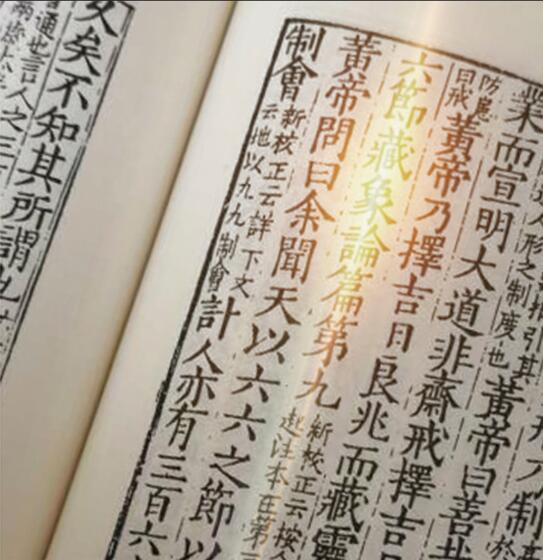 指引其
形之制度也黃帝曰善
業而宣明大道非齋戒擇吉
防患
曰戒黃帝乃擇吉日良兆而藏靈
六節藏象論篇第九
新校正云按全
起注本在第
黃帝問曰余聞天以六六之節以
制會
新校正云詳下文
云地以九九制會
計人亦有三百六
久矣不知其所謂也
通也言人之三